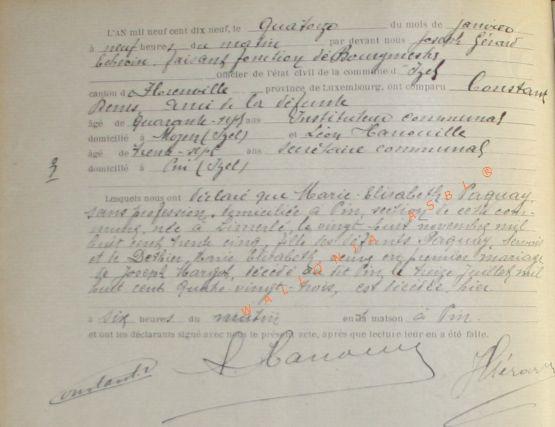 L'AN mil neuf cent dix neuf, le Quatorze du mois de janvier
à neuf heures du matin par devant nous Joseph Gérard
Echevin faisant fonction de Bourgmestre
officier de l'état civil de la commune d'Izel
canton d Florenville province de Luxembourg, ont comparu Constant
Denis, ami de la défunte
âgé de quarante-sept ans Instituteur communal
domicilié à Moyen (Izel) et Léon Hanouille
âgé de trente-sept ans secrétaire communal
domicilié à Pin (Izel)
3
Lesquels nous ont déclaré que Marie-Elisabeth Paquay
sans profession, domiciliée à Pin, section de cette com-
mune, née à le vingt huit novembre mil
huit cent trente cinq, fille des défunts Paquay,
et de Marie Elisabeth, veuve en premier mariage
de Joseph décédé au dit Pin, le treize juillet mil
huit cent quatre-vingt-trois, est décédée hier
à six heures du matin en sa maison à Pin.
et ont les déclarants signé avec nous le présent acte, après que lecture leur en a été faite.
L Hanouille
J Gérard
WALLONIA ASBL ©